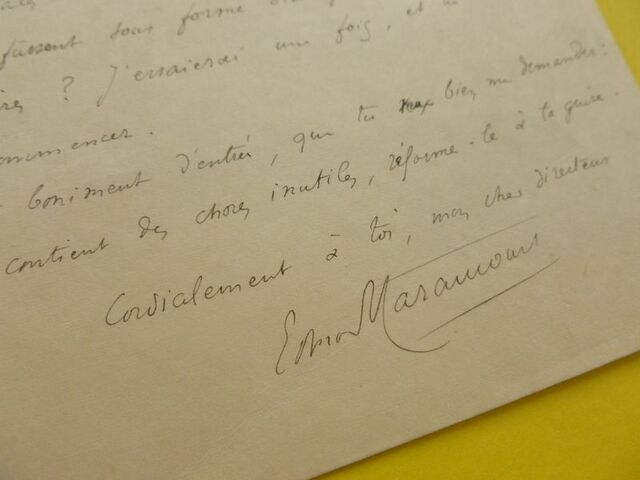 fussent sous forme
? J'essaierai une fois, et
commencer.
boniment d'entrée, que tu veux bien me demander:
contient des choses inutiles, réforme-le à ta guise.
Cordialement à toi, mon cher directeur
Edmond Haraucourt